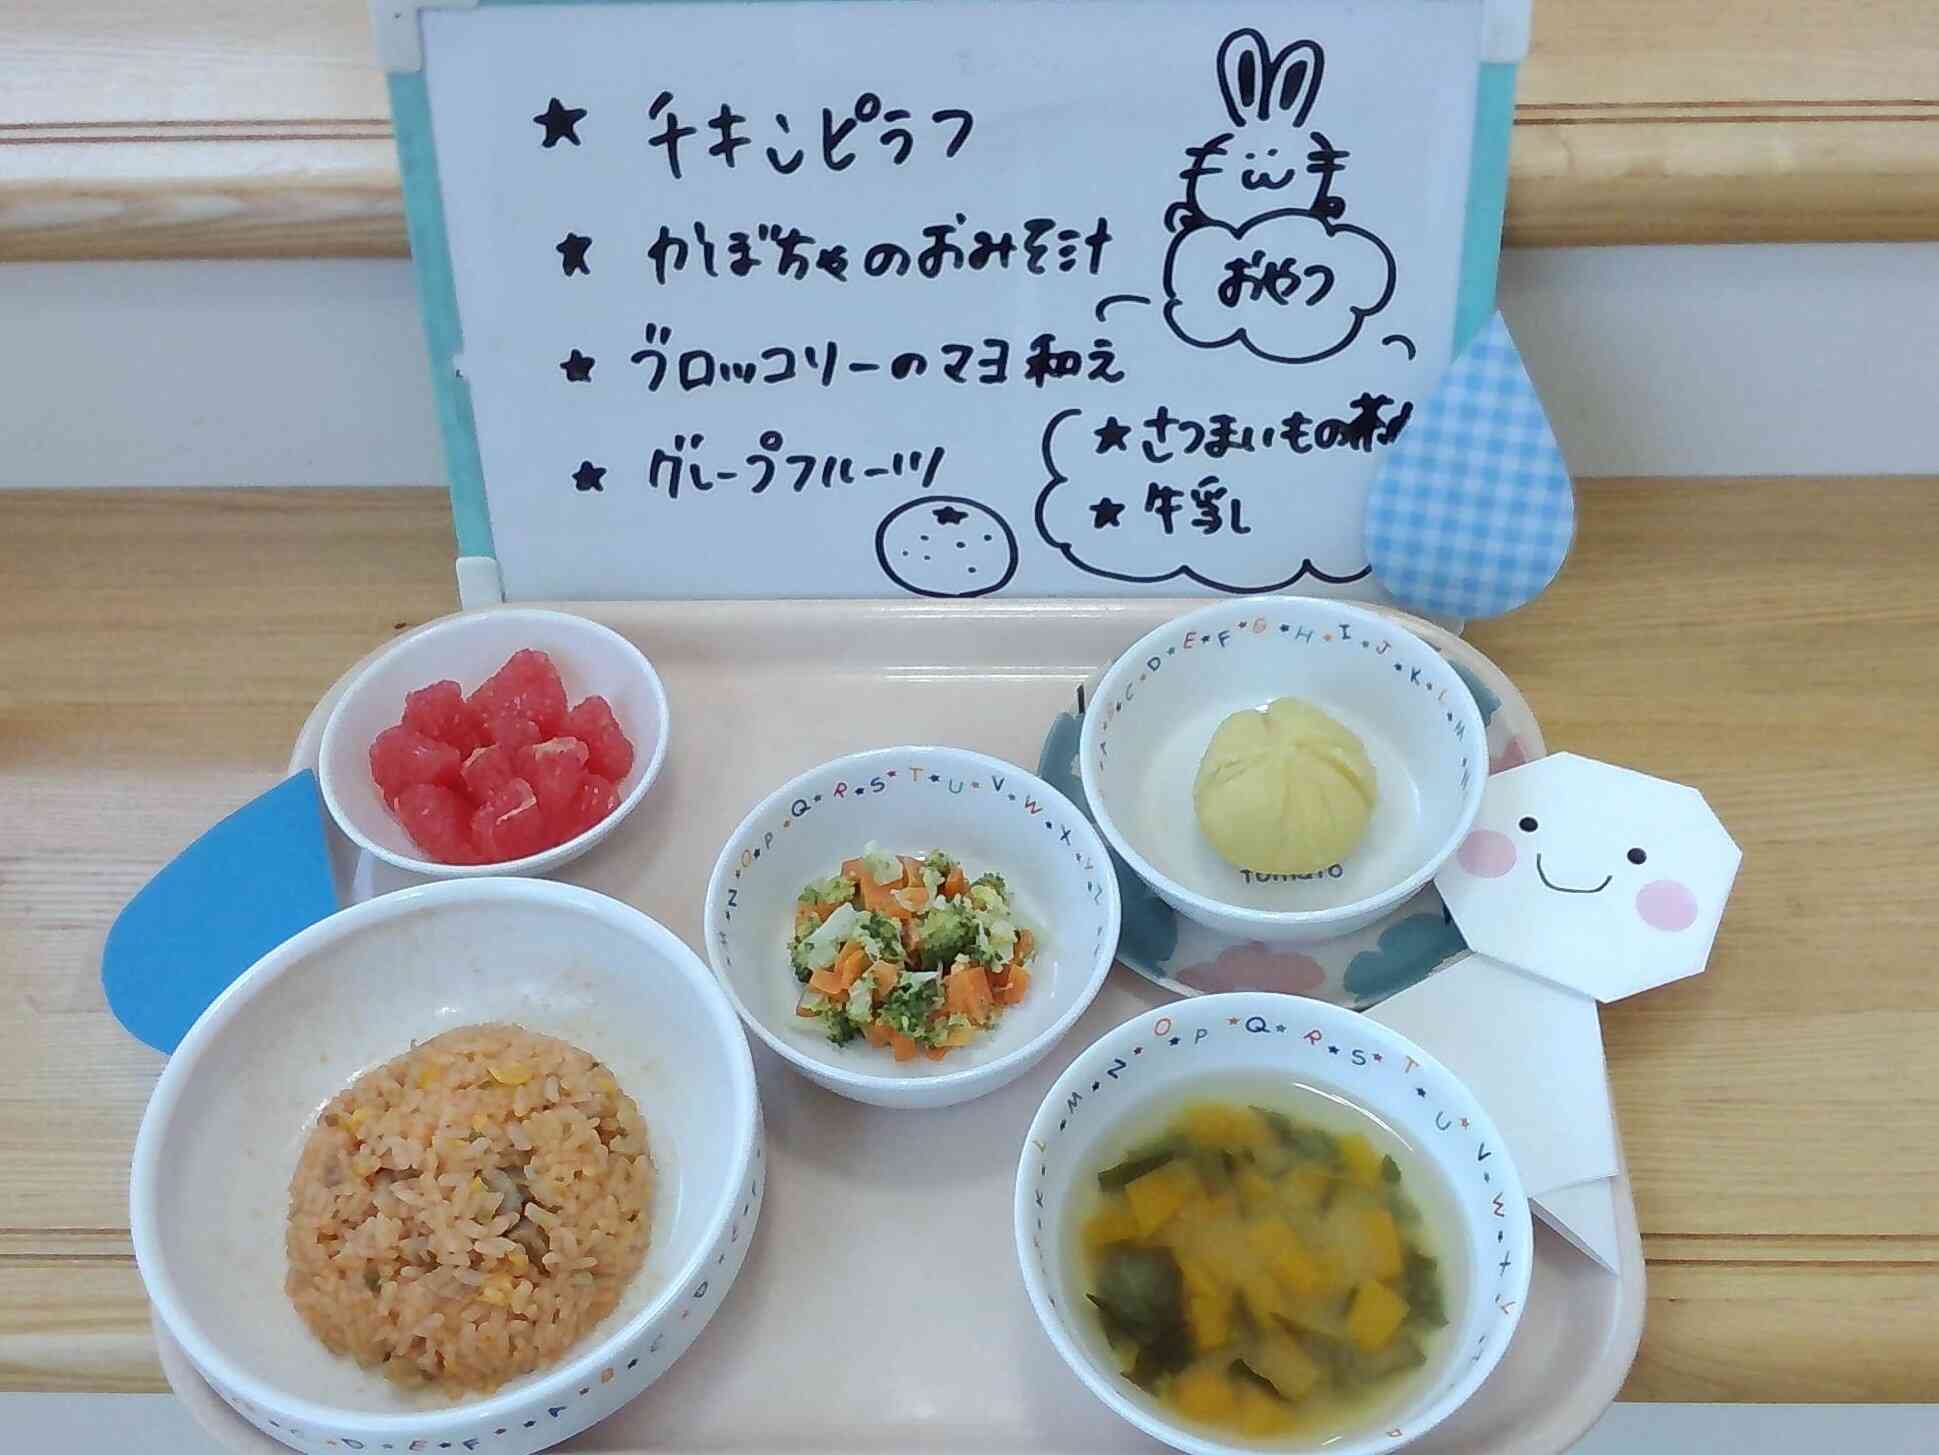 ★ チキンピラフ
★ かぼちゃのおみそ汁
★ ブロッコリーのマヨ和え
★ グレープフルーツ
おやつ
★ さつまいもの茶
★ 牛乳
A★B★C★D★E★F★G★H★I★J★K★L★M
Tomato
N★O★P★Q★R★S★T★U★V★W★X★Y★Z
K★L★M★N★O★P★Q★R★S★T★U★V★W★X
A★B★C★D★E★F